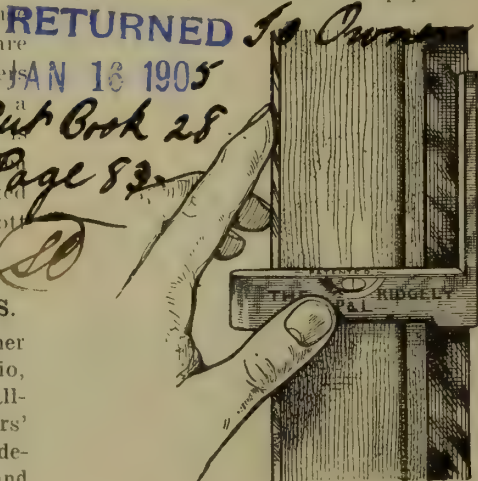 RETURNED To Owner
are
JAN 16 1905
a
Cut Book 28
Page 83
ott
S.
ner
io,
all-
rs'
de-
and
PATENTED
THE RIDGELY
P&L